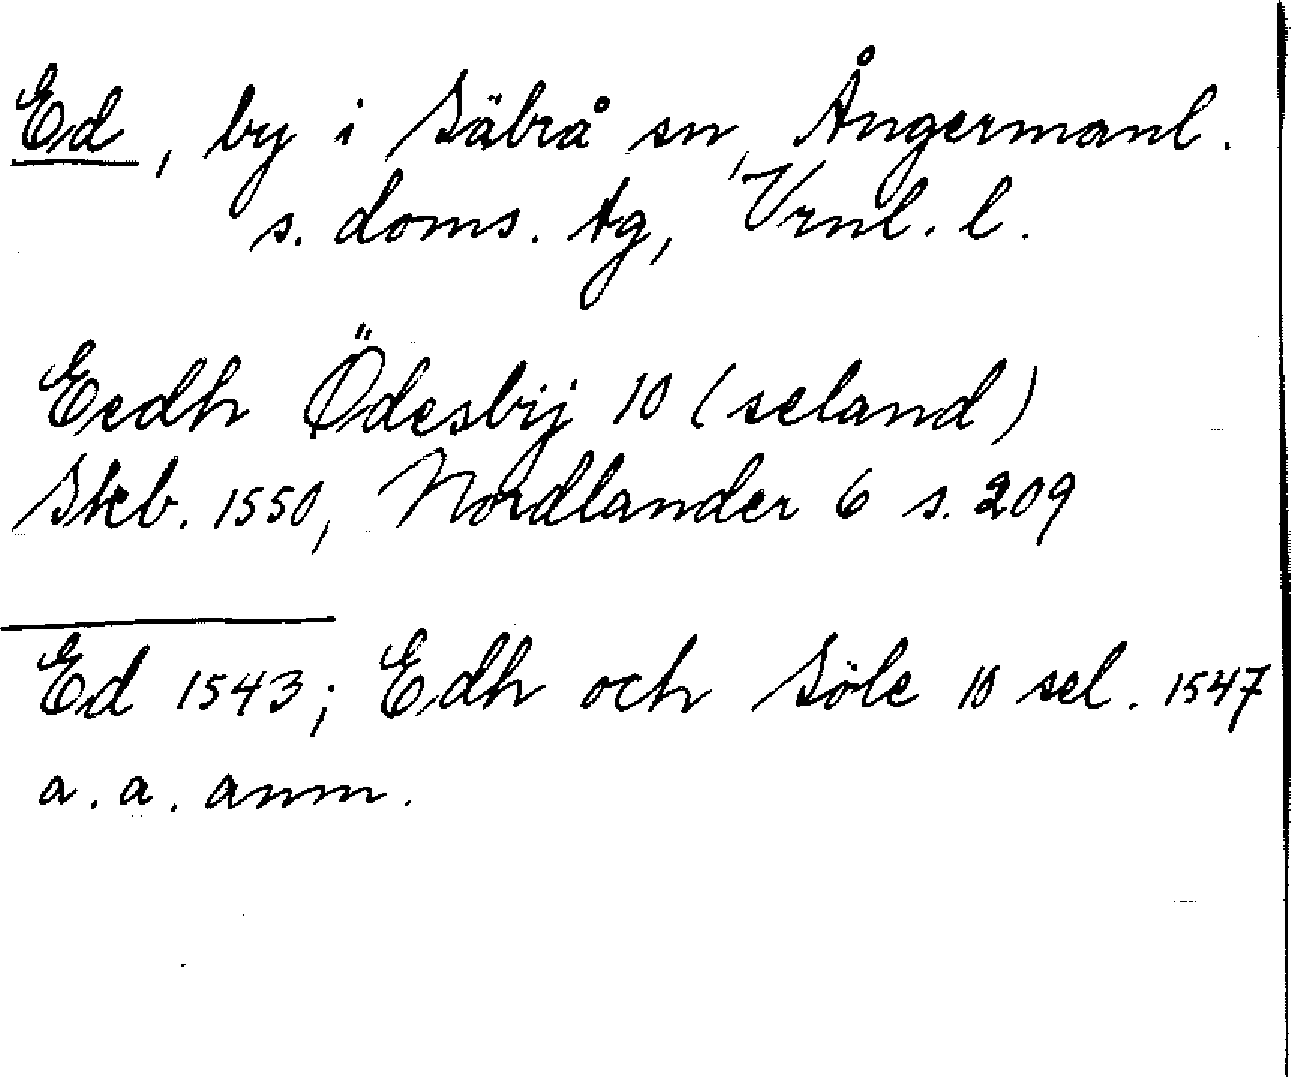 Ed, by i Säbrå sn, Ångermanl.
s. doms. tg, Vrnl. l.
Eedh Ödesbij 10 (seland)
Skb. 1550, Nordlander 6 s. 209
Ed 1543; Edh och Söle 10 sel. 1547
a. a. anm.